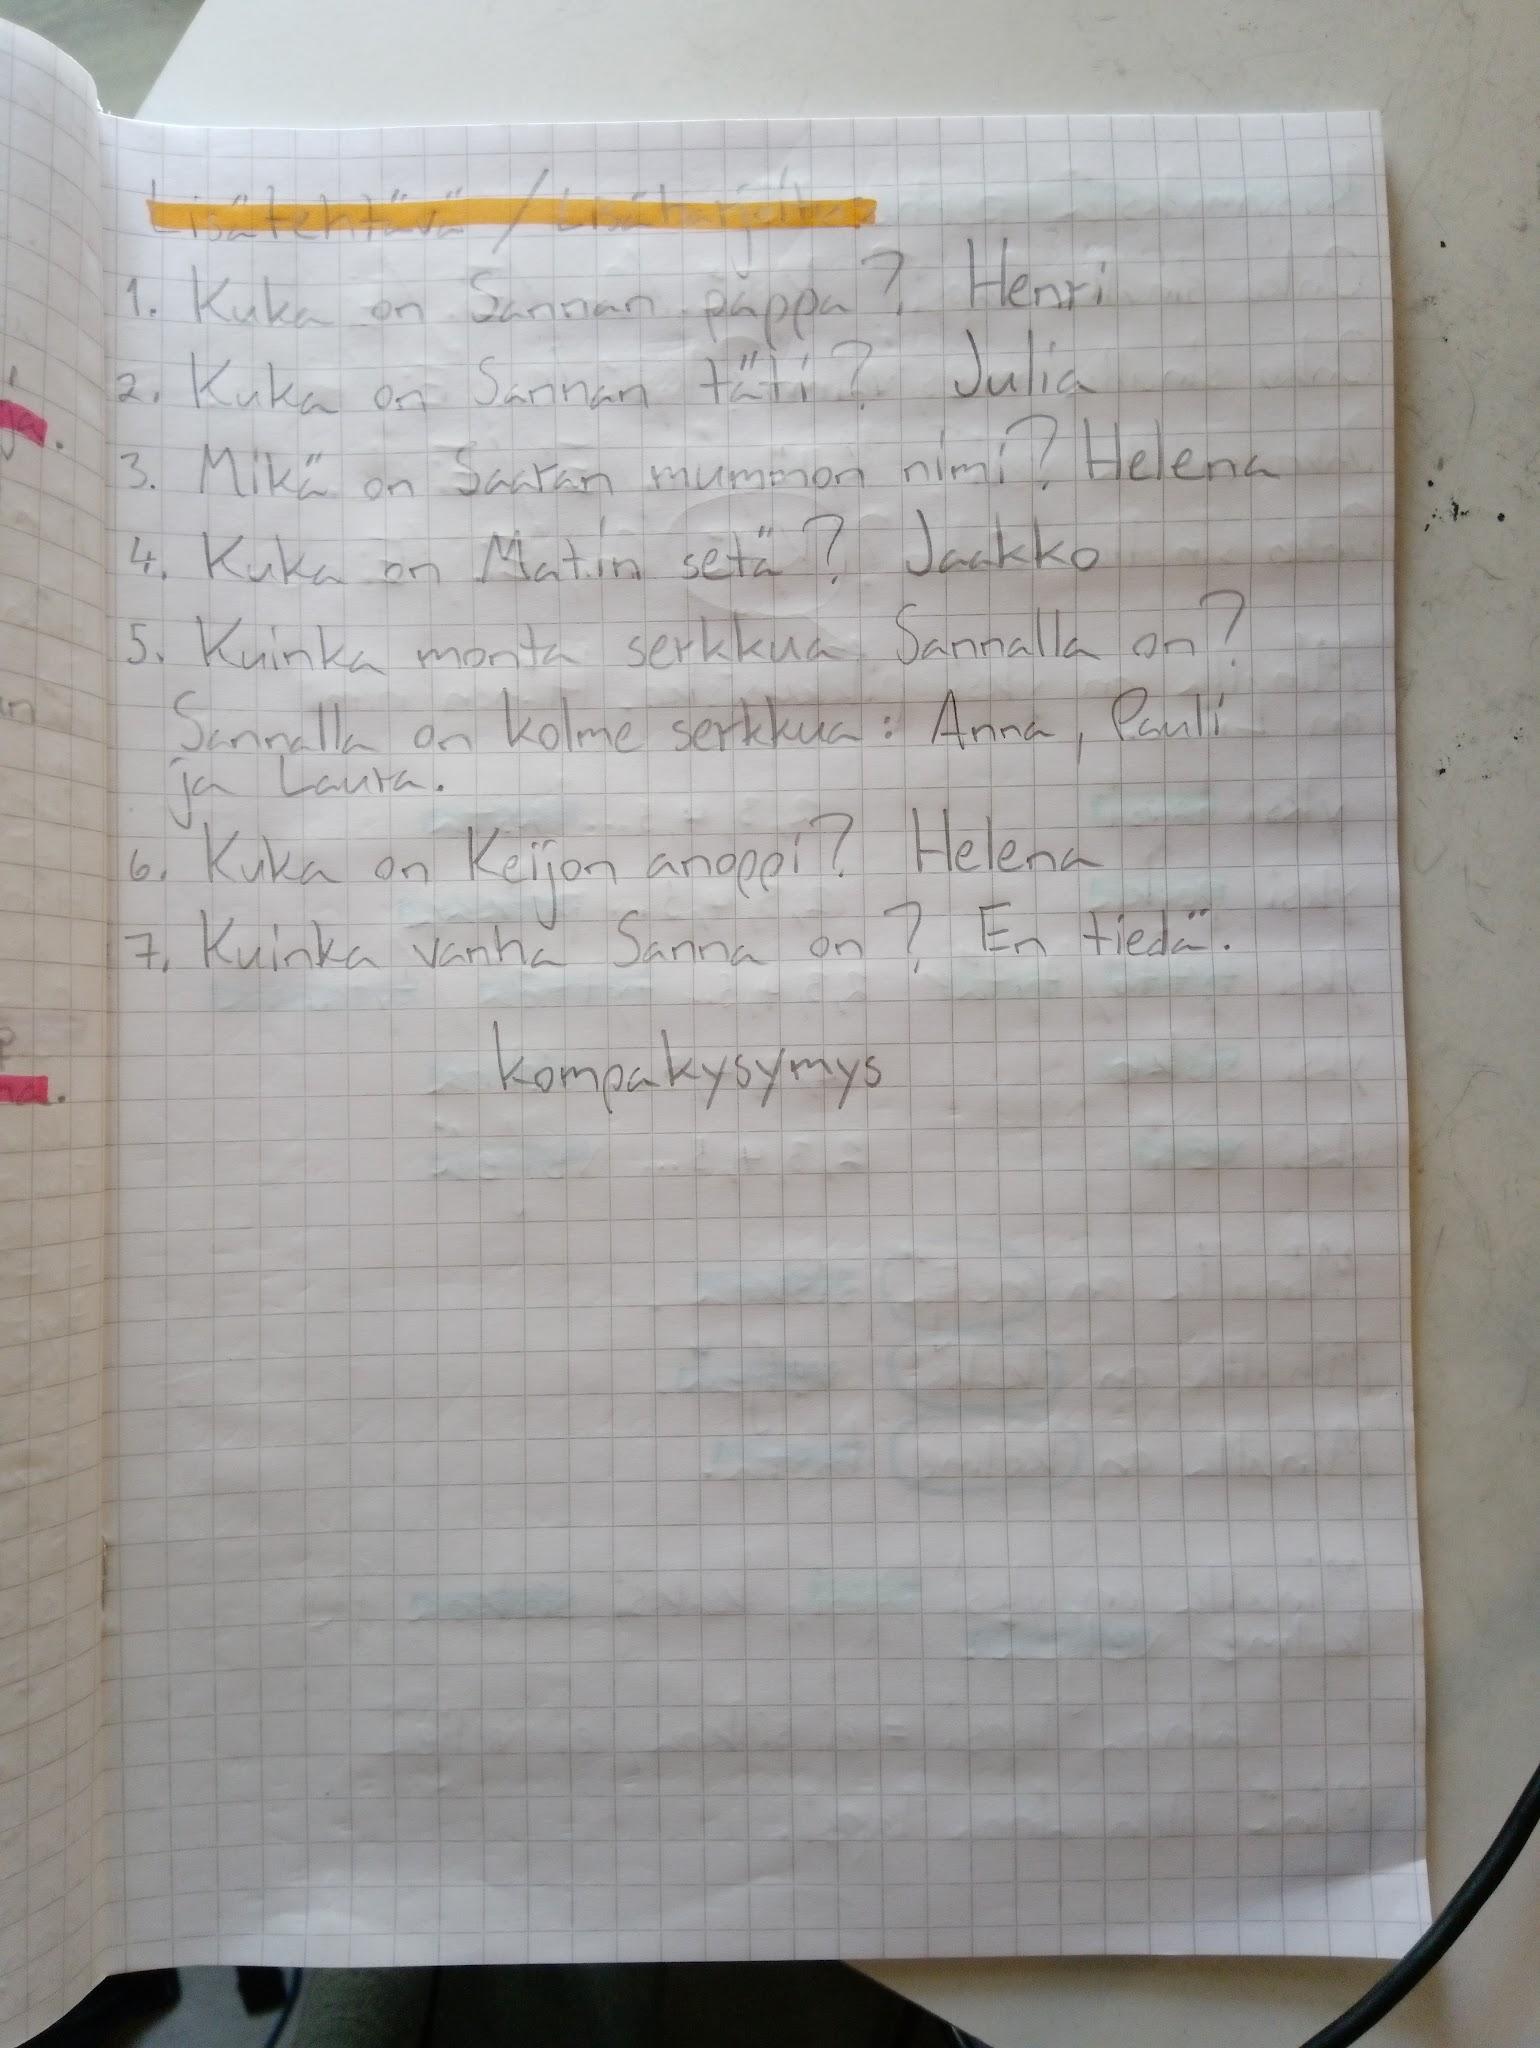 Lisätehtävä / Lisäharjoitus
1. Kuka on Sannan pappa? Henri
2. Kuka on Sannan täti? Julia
3. Mikä on Saaran mummon nimi? Helena
4. Kuka on Matin setä? Jaakko
5. Kuinka monta serkkua Sannalla on?
Sannalla on kolme serkkua: Anna, Pauli
ja Laura.
6. Kuka on Keijon anoppi? Helena
7. Kuinka vanha Sanna on? En tiedä.
kompakysymys